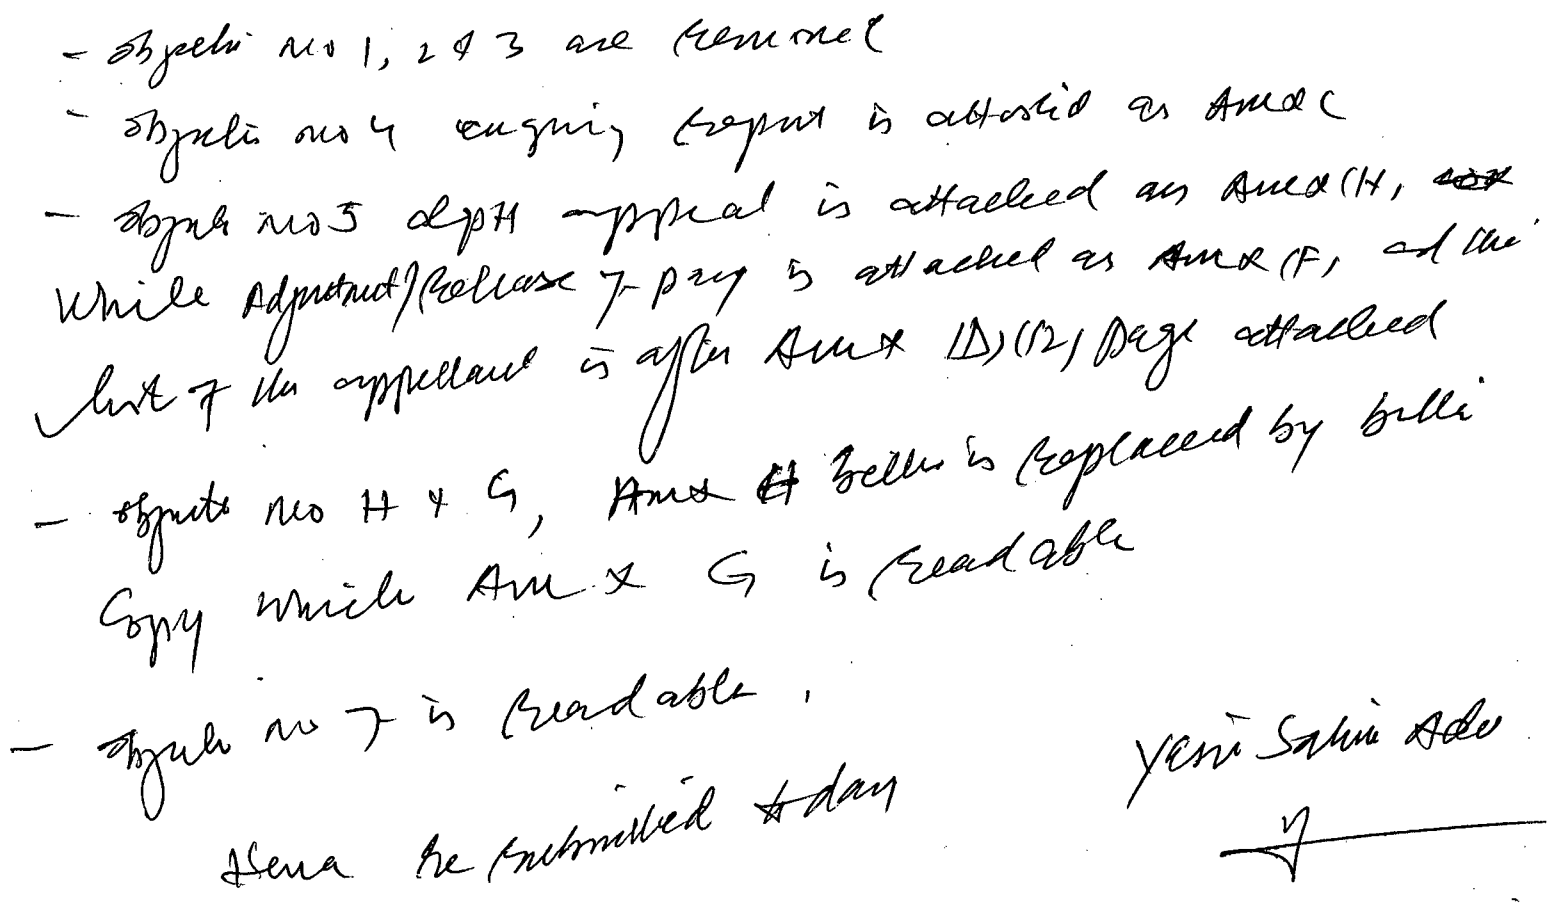 - Objection no 1, 2 & 3 are removed
- Objection no 4 enquiry report is attached as Anex C
- Objection no 5 dptt appeal is attached as Anex (H,
While Adjustment/Release of pay is attached as Anex (F, and the
list of the appellant is after Anex (D)(12) page attached
- Objection no H & G, Anex H better is replaced by better
Copy which Anex G is readable
- Objection no 7 is readable.
Hence Re submitted today
Yasir Salim Adv